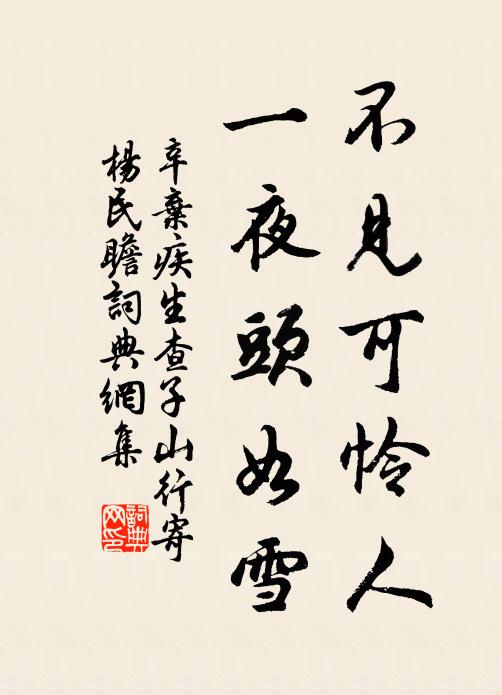 不見可憐人
一夜頭如雪
辛棄疾生查子山行寄
楊民瞻詞典網集
詞典網印